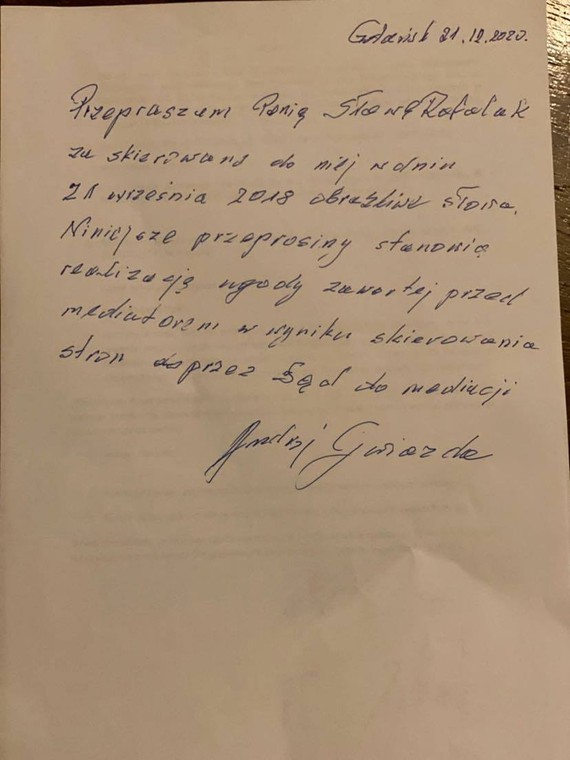 Gdańsk 21.12.2020.
Przepraszam Panią Sławę Rafalak
za skierowane do niej w dniu
21 września 2018 obraźliwe słowa.
Niniejsze przeprosiny stanowią
realizację ugody zawartej przed
mediatorem w wyniku skierowania
stron poprzez Sąd do mediacji
Andrzej Gwiazda